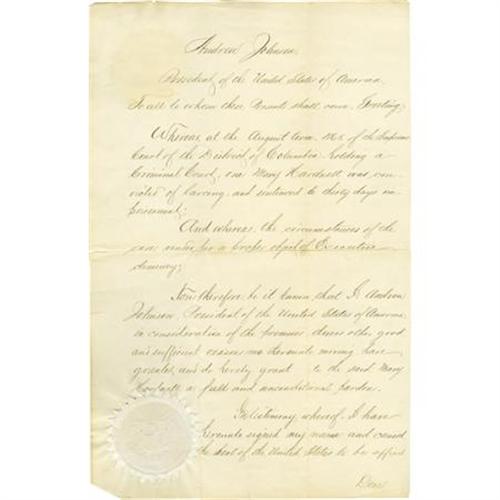 Andrew Johnson,
President of the United States of America,
To all to whom these Presents shall come, Greeting:
Whereas, at the August term, 186 of the Supreme
Court of the District of Columbia holding a
Criminal Court, one Mary was con-
victed of larceny, and sentenced to thirty days im-
prisonment;
And whereas, the circumstances of the
case make her a proper object of Executive
clemency;
Now therefore, be it known, that I, Andrew
Johnson, President of the United States of America,
in consideration of the premises, divers other good
and sufficient reasons me hereunto moving, have
granted, and do hereby grant to the said Mary
a full and unconditional pardon.
In testimony whereof, I have
hereunto signed my name and caused
the Seal of the United States to be affixed
Done